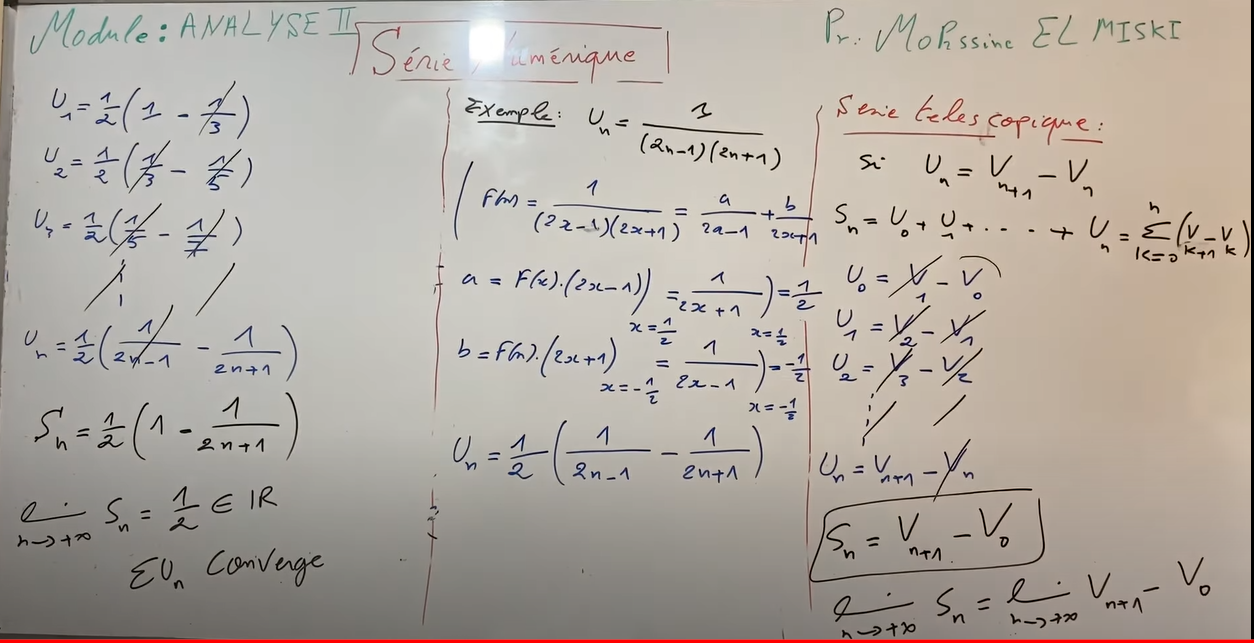 Module: ANALYSE II
Série Numérique
Pr: MoHssine EL MISKI
U_1 = 1/2 (1 - 1/3)
U_2 = 1/2 (1/3 - 1/5)
U_3 = 1/2 (1/5 - 1/7)
U_n = 1/2 (1/(2n-1) - 1/(2n+1))
S_n = 1/2 (1 - 1/(2n+1))
lim n→+∞ S_n = 1/2 ∈ IR
ΣU_n Converge
Exemple: U_n = 1/((2n-1)(2n+1))
F(x) = 1/((2x-1)(2x+1)) = a/(2x-1) + b/(2x+1)
a = F(x).(2x-1)) x=1/2 = 1/(2x+1)) x=1/2 = 1/2
b = F(x).(2x+1) x=-1/2 = 1/(2x-1)) x=-1/2 = -1/2
U_n = 1/2 (1/(2n-1) - 1/(2n+1))
Serie telescopique:
Si U_n = V_{n+1} - V_n
S_n = U_0 + U_1 + .... + U_n = Σ_{k=0}^{n} (V_{k+1} - V_k)
U_0 = V_1 - V_0
U_1 = V_2 - V_1
U_2 = V_3 - V_2
U_n = V_{n+1} - V_n
S_n = V_{n+1} - V_0
lim n→+∞ S_n = lim n→+∞ V_{n+1} - V_0